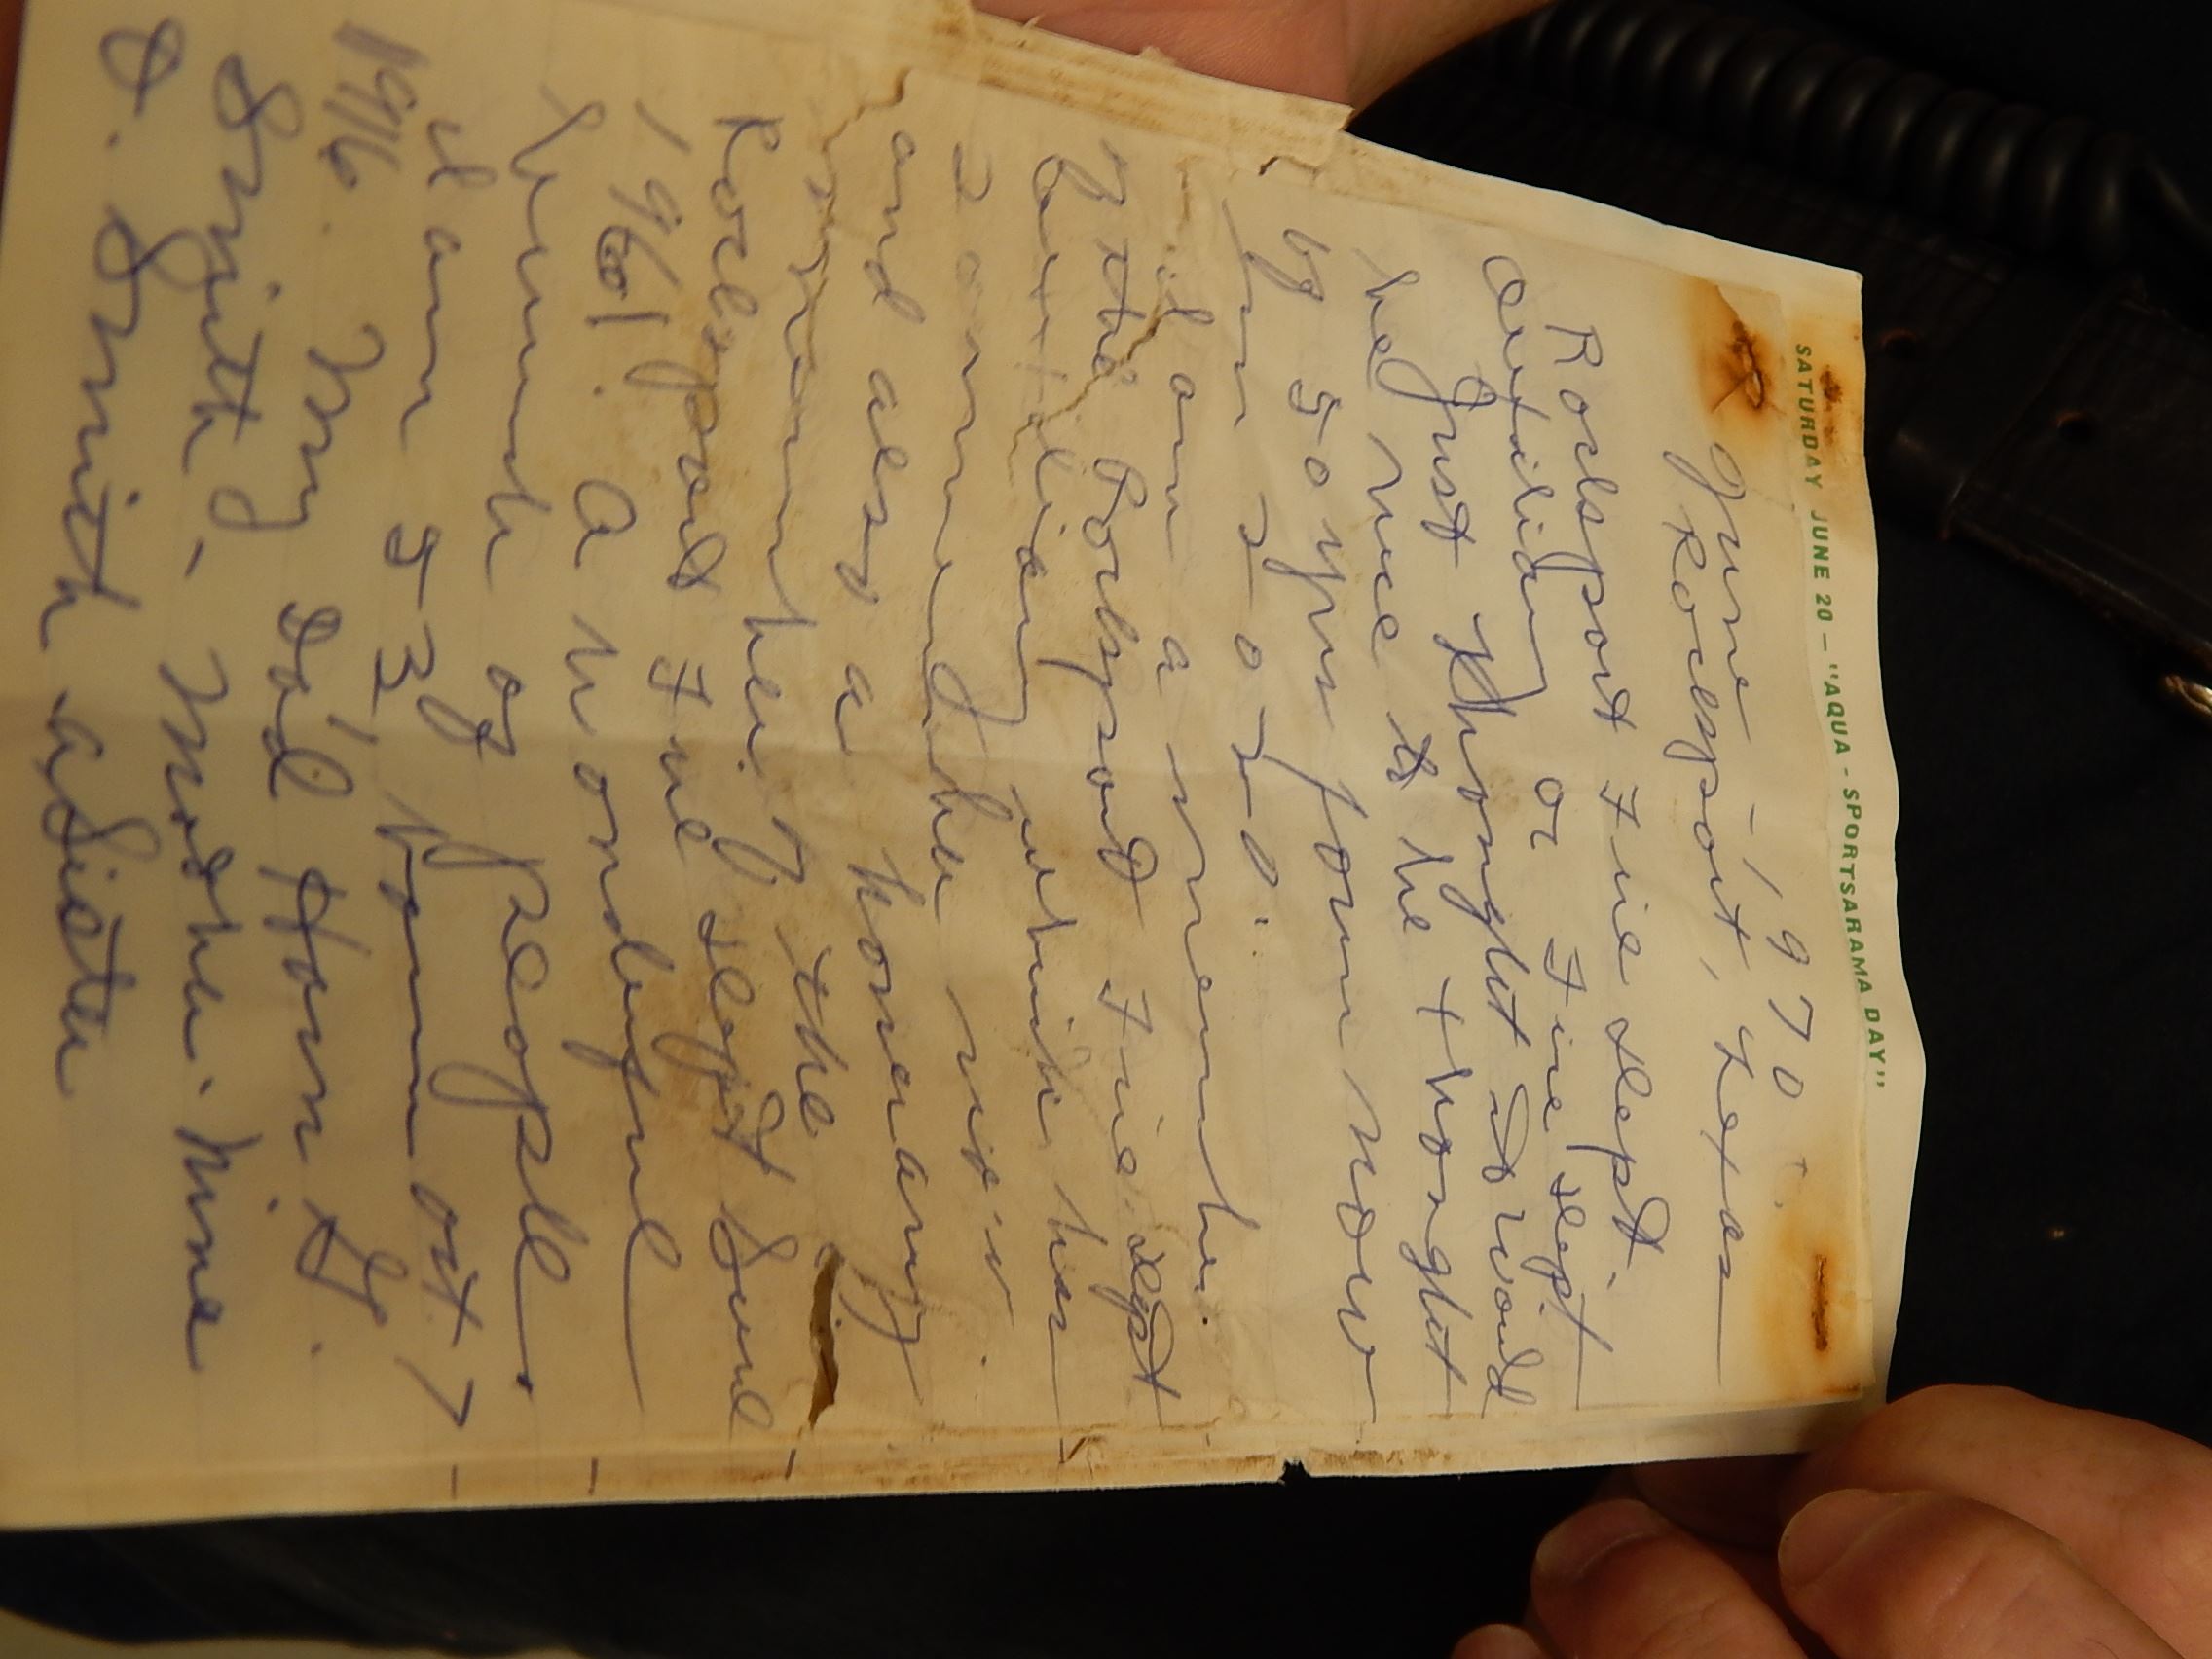 SATURDAY JUNE 20 — "AQUA - SPORTSARAMA DAY"
June - 1970.
Rockport, Texas
Rockport Fire Dept.
Auxiliary or Fire Dept
Just thought it would
be nice to be thought
of 50 yrs from now
in 2020.
I am a member
of the Rockport Fire Dept
Auxiliary which has
members now
and also a honorary
member of the
Rockport Fire Dept Since
1961. A wonderful
bunch of people.
I am 53, born oct 7
1916. My Dad Harry G.
Smith, Mother. Mina
O. Smith a Sister